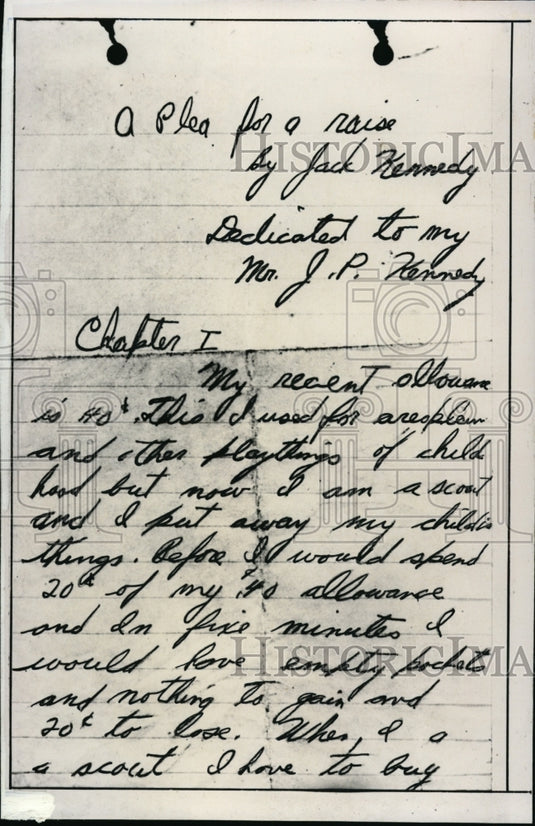 A Plea for a raise
by Jack Kennedy
Dedicated to my
Mr. J. P. Kennedy
Chapter I
My recent allowance
is 40¢. This I used for areoplain
and other playthings of child
hood but now I am a scout
and I put away my childis
things. Before I would spend
20¢ of my ¢40 allowance
and In five minutes I
would have empty pockets
and nothing to gain and
20¢ to lose. When I a
a scout I have to buy
HISTORIC IMA
HISTORIC IMA